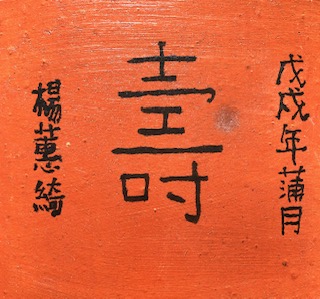 戊戌年蒲月
壽
楊蕙綺